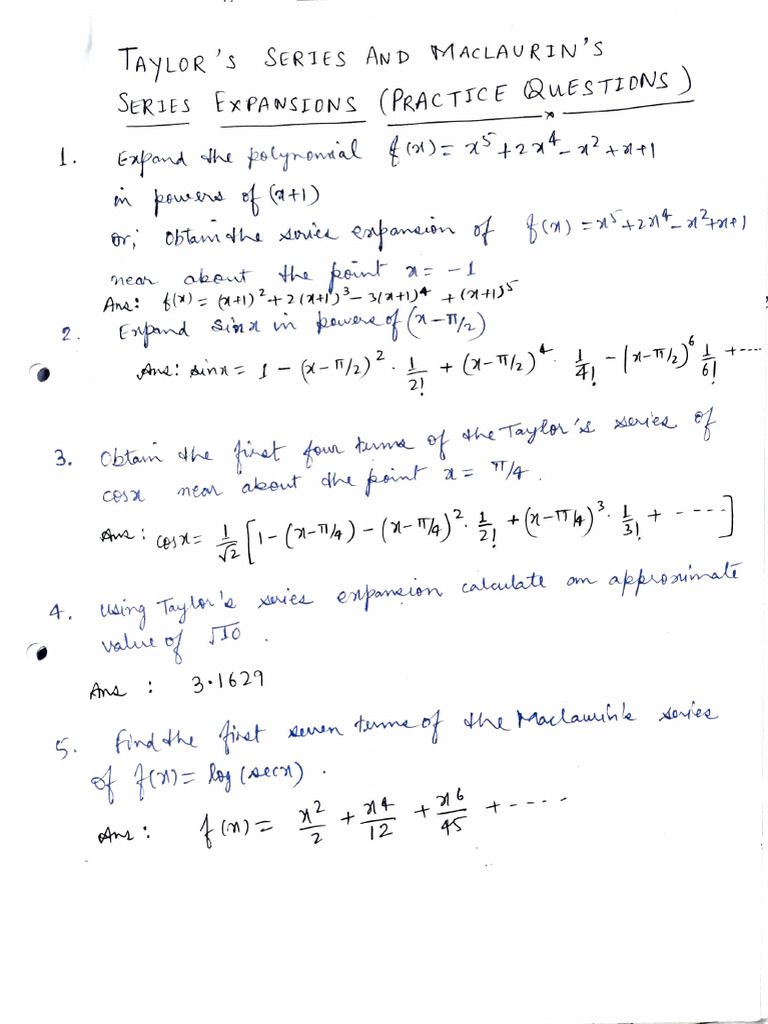 TAYLOR'S SERIES AND MACLAURIN'S
SERIES EXPANSIONS (PRACTICE QUESTIONS)
1. Expand the polynomial f(x) = x⁵+2x⁴-x²+x+1
in powers of (x+1)
or; Obtain the series expansion of f(x) = x⁵+2x⁴-x²+x+1
near about the point x = -1
Ans: f(x) = (x+1)²+2(x+1)³-3(x+1)⁴+(x+1)⁵
2. Expand sinx in powers of (x-π/2)
Ans: sinx = 1 - (x-π/2)² · 1/2! + (x-π/2)⁴ · 1/4! - (x-π/2)⁶ 1/6! + ....
3. Obtain the first four terms of the Taylor's series of
cosx near about the point x = π/4.
Ans: cosx = 1/√2 [1-(x-π/4)-(x-π/4)² · 1/2! + (x-π/4)³ · 1/3! + ----]
4. Using Taylor's series expansion calculate an approximate
value of √10.
Ans : 3.1629
5. Find the first seven terms of the Maclaurin's series
of f(x) = log(secx).
Ans: f(x) = x²/2 + x⁴/12 + x⁶/45 + ----